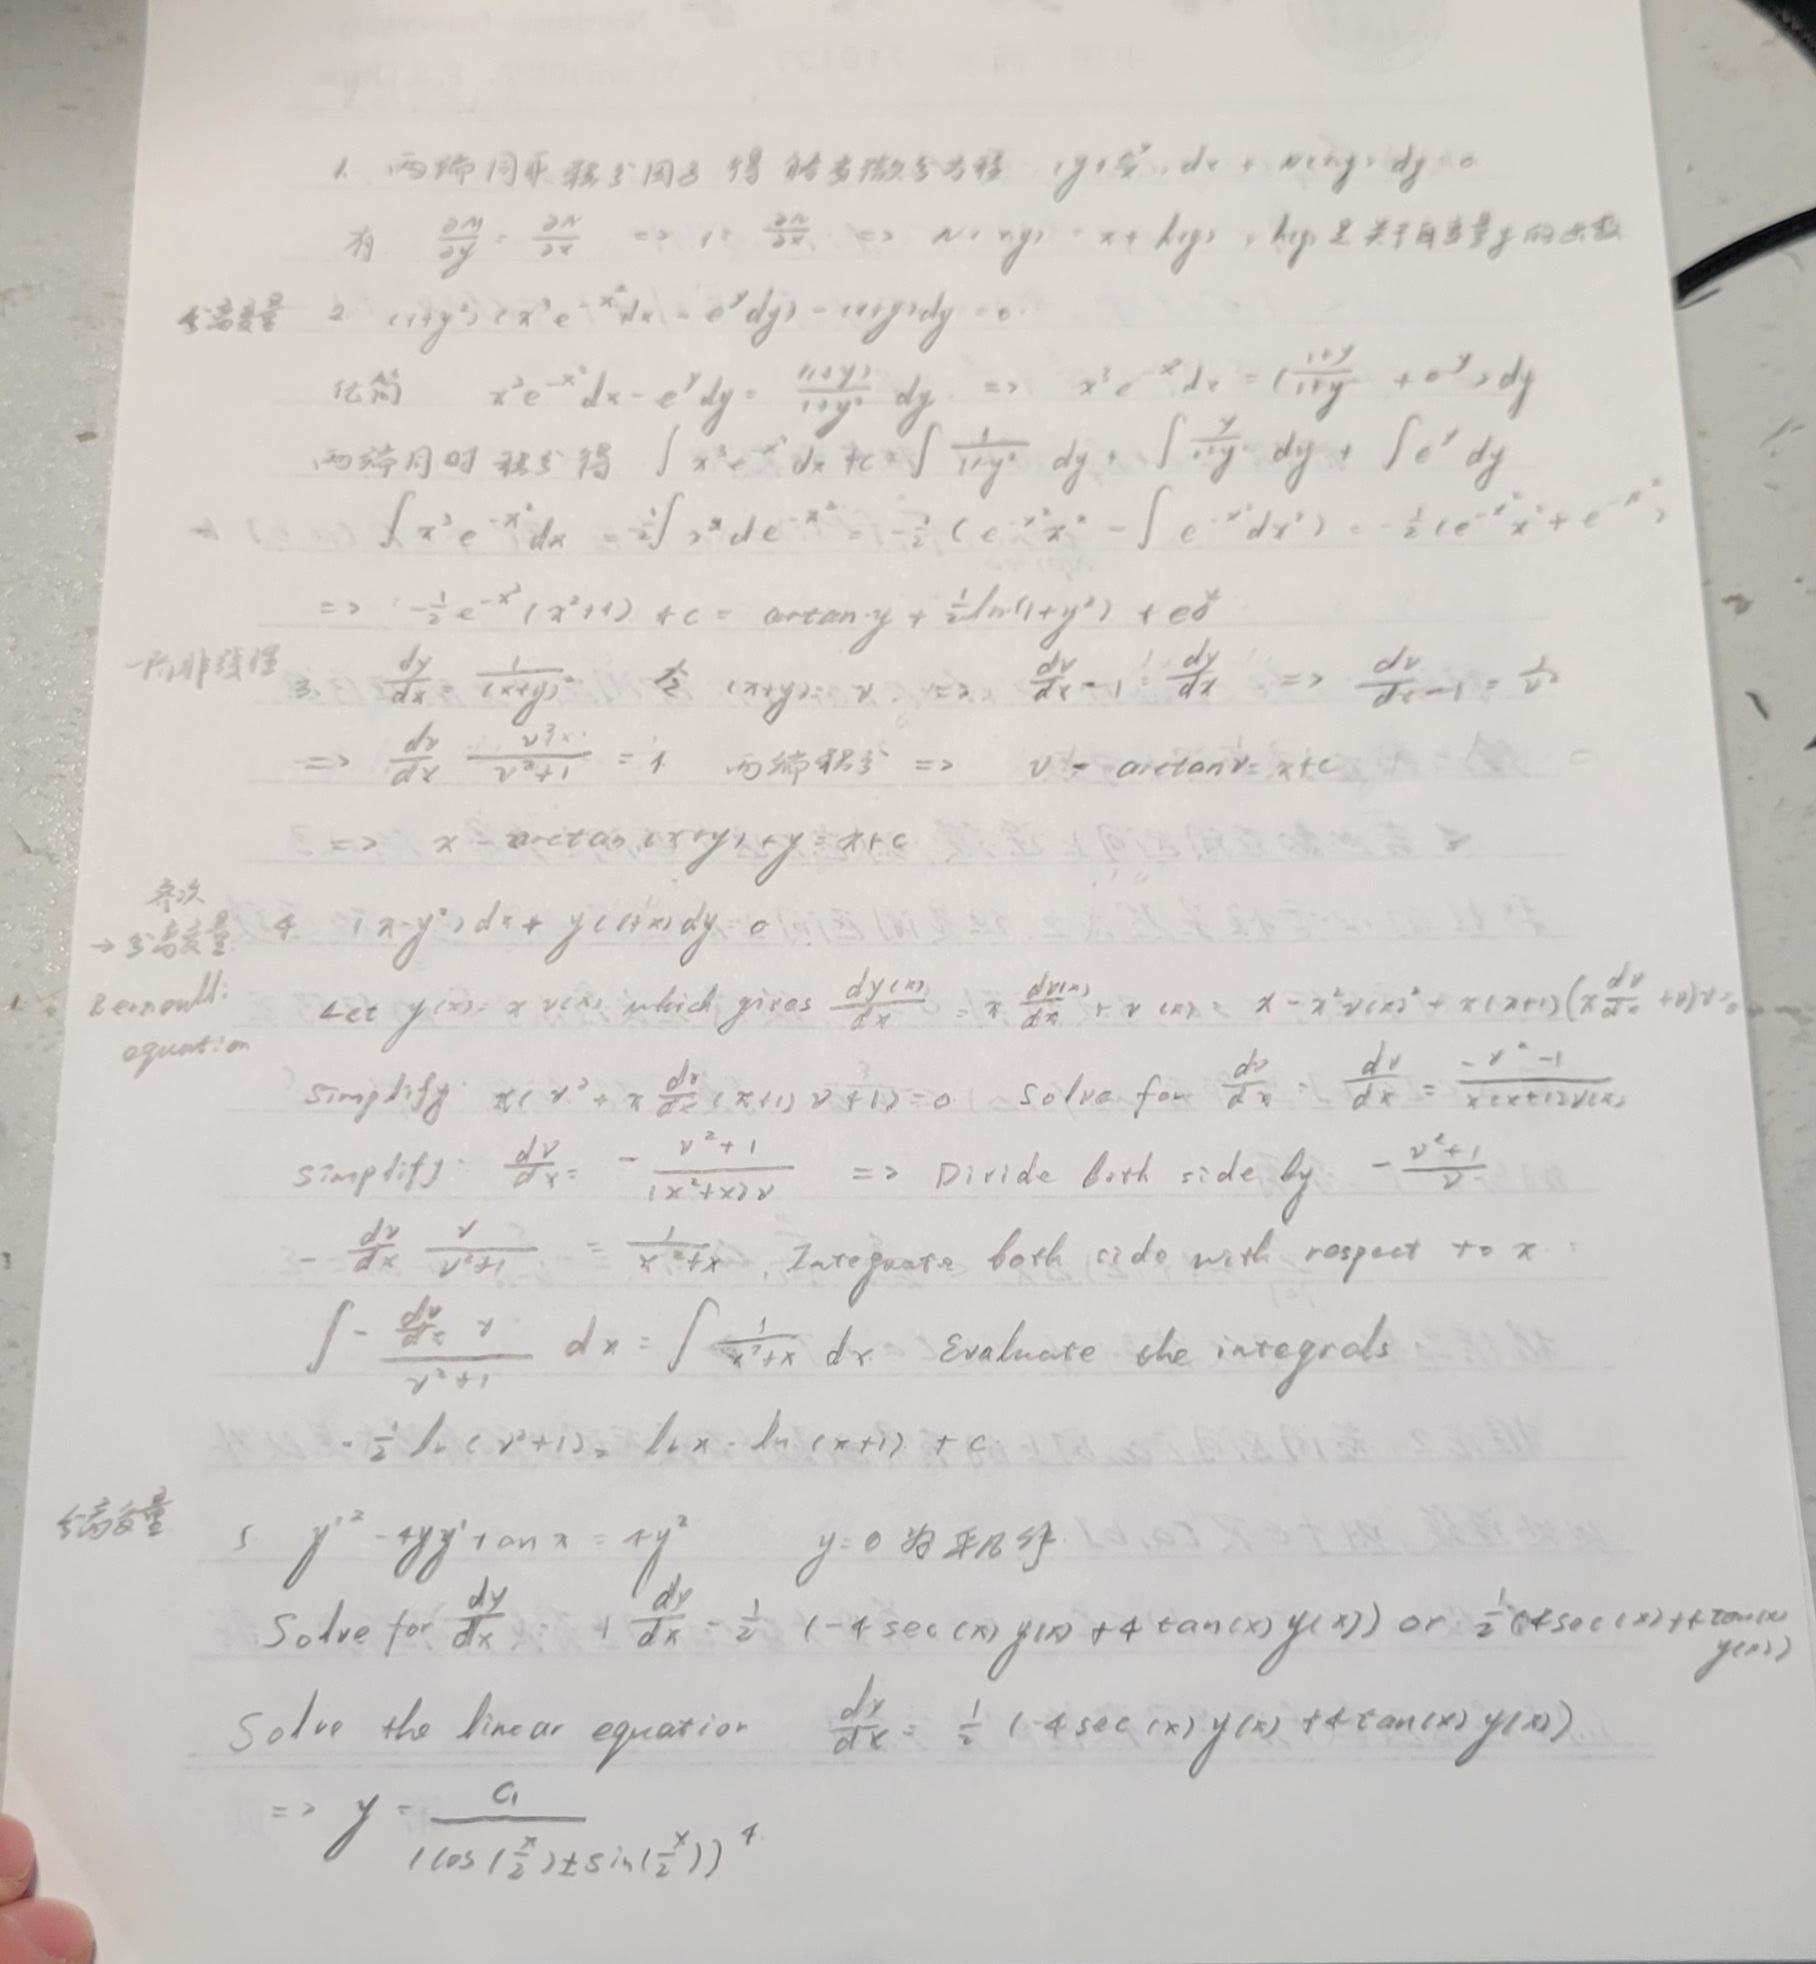 1. 两端同乘积分因子 得 的为微分方程 (y+ dx + N(x,y) dy=0
有 ∂M/∂y = ∂N/∂x => 1= ∂N/∂x => N(x,y) = x+h(y), h(y)是关于自变量y的函数
分离变量 2. (1+y²)(x³e^{-x²}dx - e^y dy) - (1+y)dy = 0
化简 x³e^{-x²}dx - e^y dy = (1+y)/(1+y²) dy => x³e^{-x²}dx = ((1+y)/(1+y²) + e^y) dy
两端同时积分得 ∫x³e^{-x²}dx + c = ∫1/(1+y²) dy + ∫y/(1+y²) dy + ∫e^y dy
∫x³e^{-x²}dx = -1/2∫x²de^{-x²} = -1/2(e^{-x²}x² - ∫e^{-x²}dx²) = -1/2(e^{-x²}x² + e^{-x²})
=> -1/2e^{-x²}(x²+1) + c = arctan y + 1/2 ln(1+y²) + e^y
一阶非线性 3. dy/dx = 1/(x+y)² 令 (x+y) = v. => dv/dx - 1 = dy/dx => dv/dx - 1 = 1/v²
=> dv/dx v²/(v²+1) = 1 两端积分 => v - arctan v = x+c
=> x - arctan(x+y) + y = x+c
齐次
→分离变量 4 (x-y²)dx + y(1+x)dy = 0
Bernoulli equation
Let y(x) = x v(x), which gives dy(x)/dx = x dv(x)/dx + v(x) = x - x²v(x)² + x(x+1)(x dv/dx + v)v = 0
Simplify: x(v² + x dv/dx (x+1)v + 1) = 0 Solve for dv/dx : dv/dx = (-v²-1)/(x(x+1)v(x))
Simplify: dv/dx = - (v²+1)/((x²+x)v) => Divide both side by - (v²+1)/v
- dv/dx v/(v²+1) = 1/(x²+x), Integrate both side with respect to x :
∫ - (dv/dx v)/(v²+1) dx = ∫ 1/(x²+x) dx Evaluate the integrals
- 1/2 ln(v²+1) = ln x - ln(x+1) + c
分离变量 5 y'² - 4yy'tan x = 4y² y=0 为平凡解
Solve for dy/dx : dy/dx = 1/2 (-4sec(x)y(x) + 4tan(x)y(x)) or 1/2(4sec(x) + 4tan(x) y(x))
Solve the linear equation dy/dx = 1/2 (-4sec(x)y(x) + 4tan(x)y(x))
=> y = C₁/(cos(x/2) ± sin(x/2))⁴